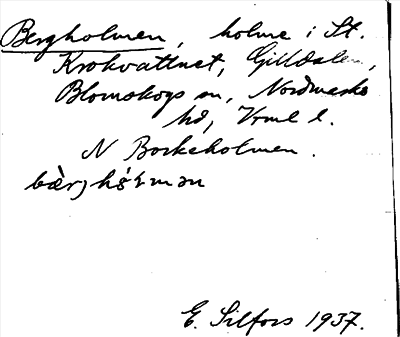 Bergholmen, holme i St.
Krokvattnet, Gilldalen,
Blomskogs sn, Nordmarks
hd, Vrml l.
N Borkeholmen.
bæ̀rjhɷ́ɫmən
E. Silfors 1937.